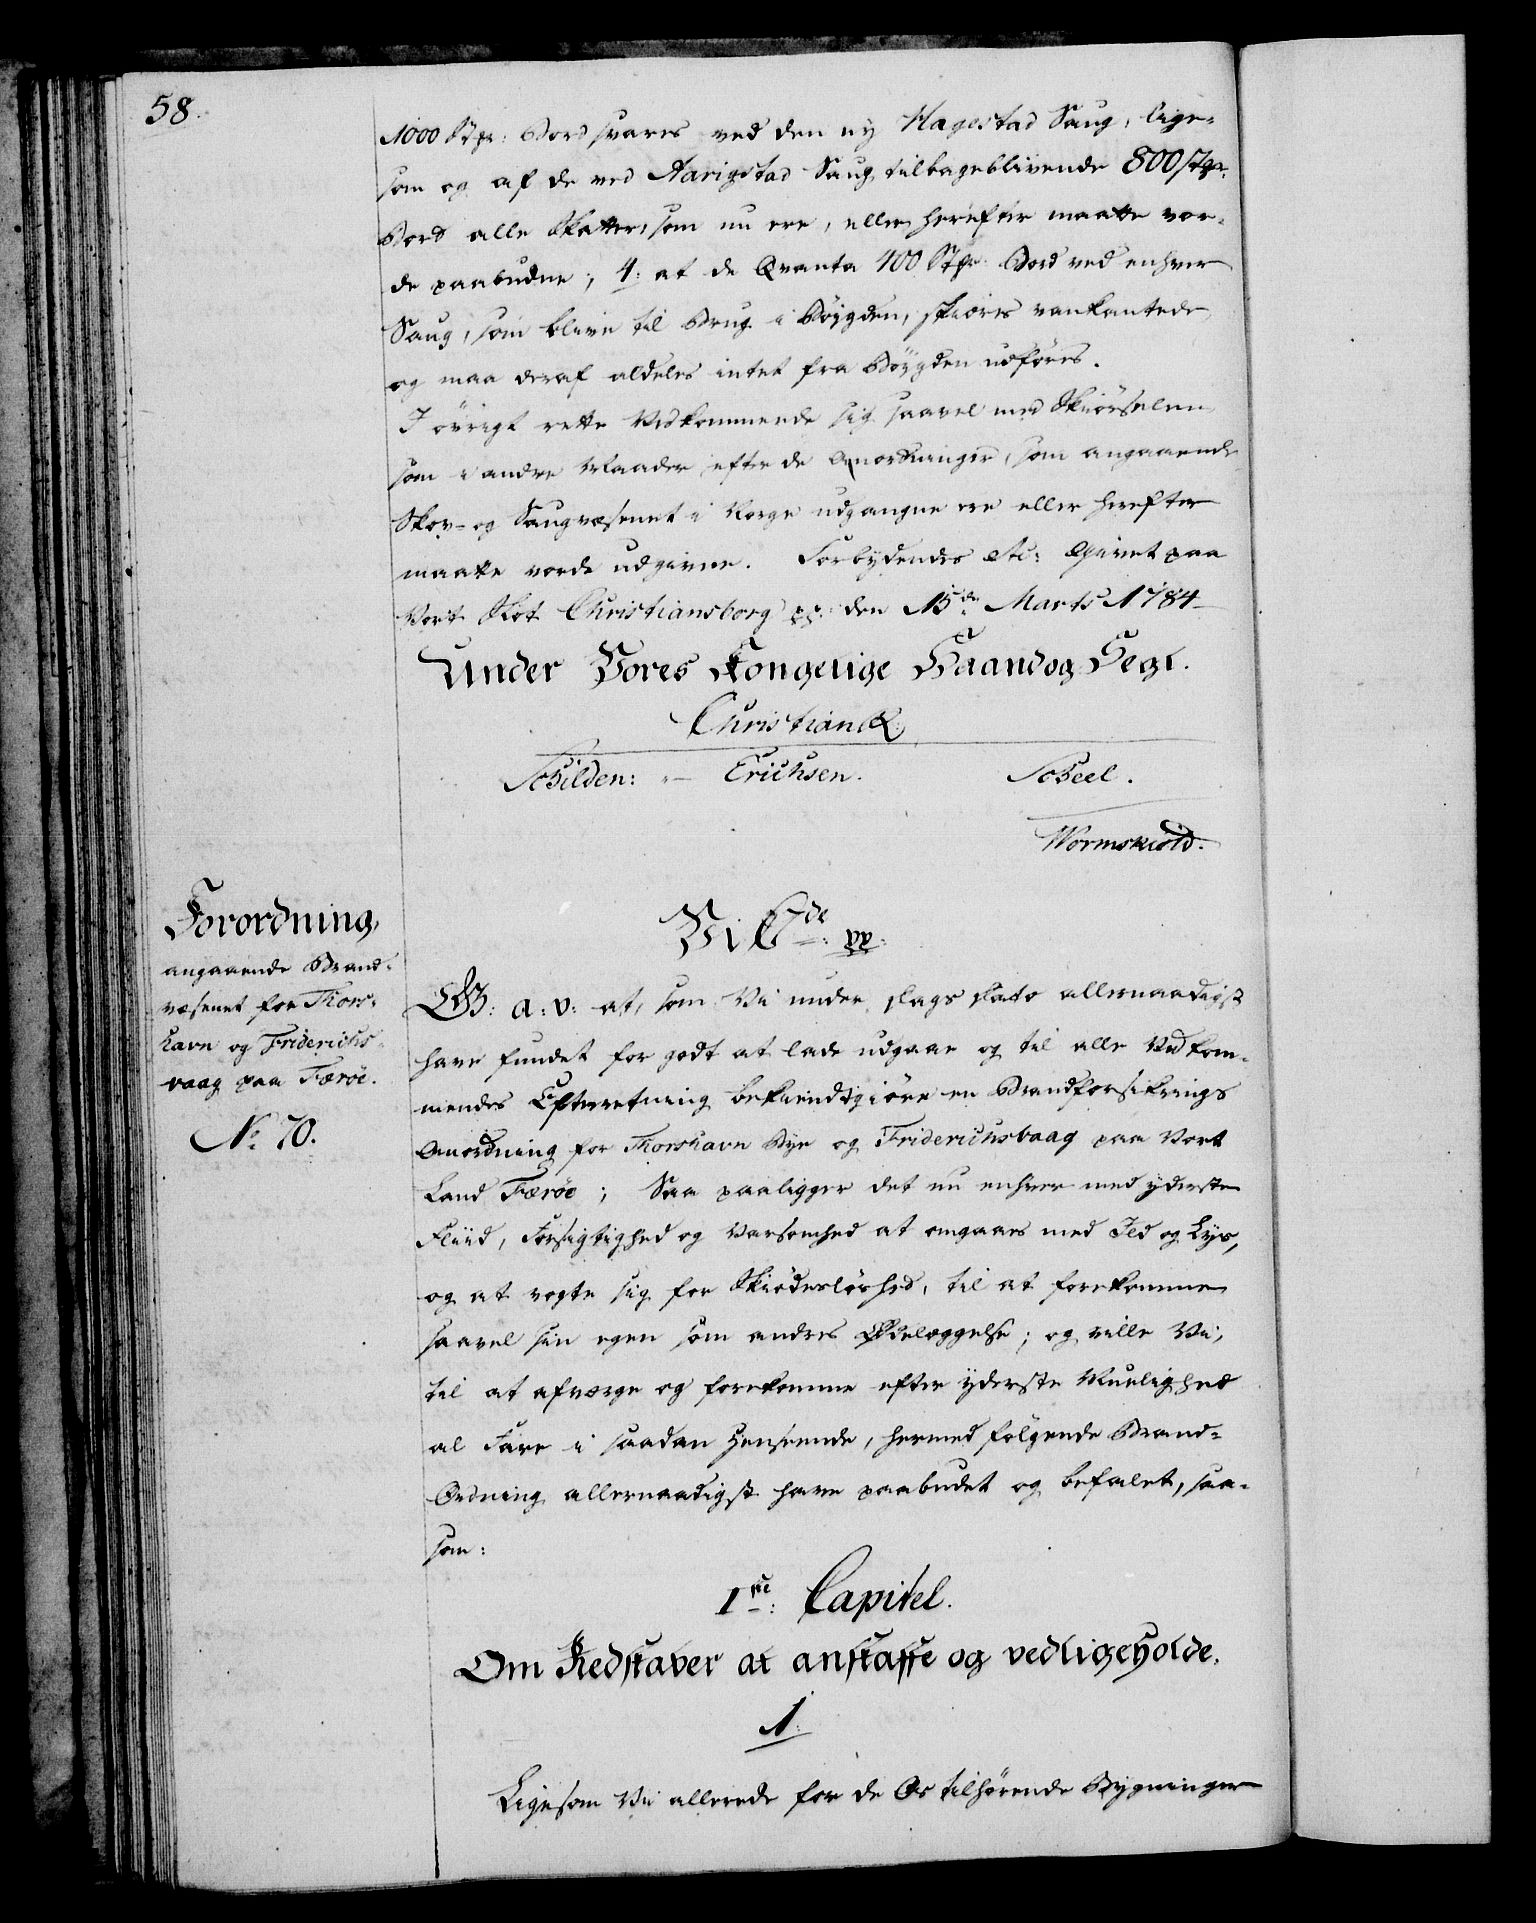 58.
1000 Stkr. Bord svares ved den ny Hagestad Saug, lige-
som og af de ved Aarigstad Saug tilbageblivende 800 Stkr.
Bord alle Skatter, som nu ere, eller herefter maatte vor-
de paabudne; 4. at de Qvanta 400 Stkr. Bord ved enhver
Saug, som blive til Brug i Böygden, skiæres vankantede,
og maa deraf aldeles intet fra Böygden udföres.
I övrigt rette Vedkommende sig saavel med Skiörselen
som i andre Maader efter de Anordninger, som angaaende
Skov- og Saugvæsenet i Norge udgangne ere eller herefter
maatte vorde udgivne. Forbydendes etc: Givet paa
Vort Slot Christiansborg pp: den 15de Marts 1784
Under Vores Kongelige Haand og Segl.
Christian R.
Schilden: - Erichsen. Scheel.
Wormskiold.
Forordning,
angaaende Brand-
væsenet for Thors-
havn og Friderichs-
vaag paa Færöe.
No. 70.
Vi C 7de: pp:
G: a: v: at, som Vi under Dags Dato allernaadigst
have fundet for godt at lade udgaae og til alle Vedkom-
mendes Efterretning bekiendtgiöre en Brandforsikrings
Anordning for Thorshavn Bye og Friderichsvaag paa Vort
Land Færöe; Saa paaligger det nu enhver med yderste
Fliid, Forsigtighed og Varsomhed at omgaaes med Ild og Lys,
og at vogte sig for Skiödeslöshed, til at forekomme
saavel sin egen som andres Ödelæggelse; og ville Vi,
til at afværge og forekomme efter yderste Muelighed
al Fare i saadan Henseende, hermed fölgende Brand-
Ordning allernaadigst have paabudet og befalet, saa-
som:
1ste: Capitel.
Om Redskaber at anskaffe og vedligeholde.
1.
Ligesom Vi allerede for de Os tilhörende Bygninger